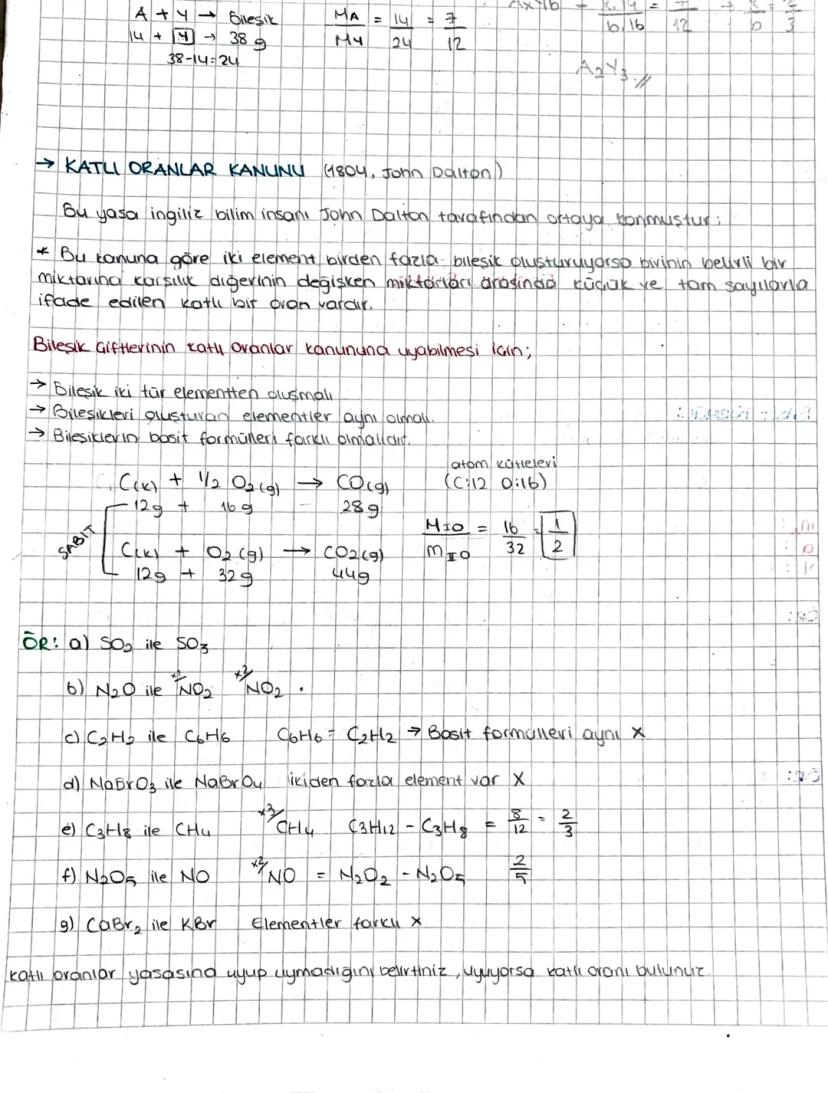 A + Y → Bileşik
14 + [Y] → 38 g
38-14=24
MA/MY = 14/24 = 7/12
b.16
12
b 3
A2Y3 //
→ KATLI ORANLAR KANUNU (1804, John Dalton)
Bu yasa ingiliz bilim insanı John Dalton tarafından ortaya konmuştur;
* Bu kanuna göre iki element birden fazla bileşik oluşturuyorsa birinin belirli bir
miktarına karşılık diğerinin değişken miktarları arasında küçük ve tam sayılarla
ifade edilen katlı bir oran vardır.
Bileşik Çiftlerinin katlı oranlar kanununa uyabilmesi için;
→ Bileşik iki tür elementten oluşmalı
→ Bileşikleri oluşturan elementler aynı olmalı.
→ Bileşiklerin basit formülleri farklı olmalıdır.
atom kütleleri
(C:12 O:16)
C(k) + 1/2 O2(g) → CO(g)
12g + 16g 28g
SABİT
C(k) + O2(g) → CO2(g)
12g + 32g 44g
MIO/mIO = 16/32 = 1/2
ÖR: a) SO2 ile SO3
b) N2O ile NO2 x2/ NO2 .
c) C2H2 ile C6H6 C6H6 = C2H2 → Basit formülleri aynı X
d) NaBrO3 ile NaBrO4 ikiden fazla element var X
e) C3H8 ile CH4 x3/ CH4 C3H12 - C3H8 = 8/12 = 2/3
f) N2O5 ile NO x2/ NO = N2O2 - N2O5 2/5
g) CaBr2 ile KBr Elementler farklı X
katlı oranlar yasasına uyup uymadığını belirtiniz, uyuyorsa katlı oranı bulunuz.